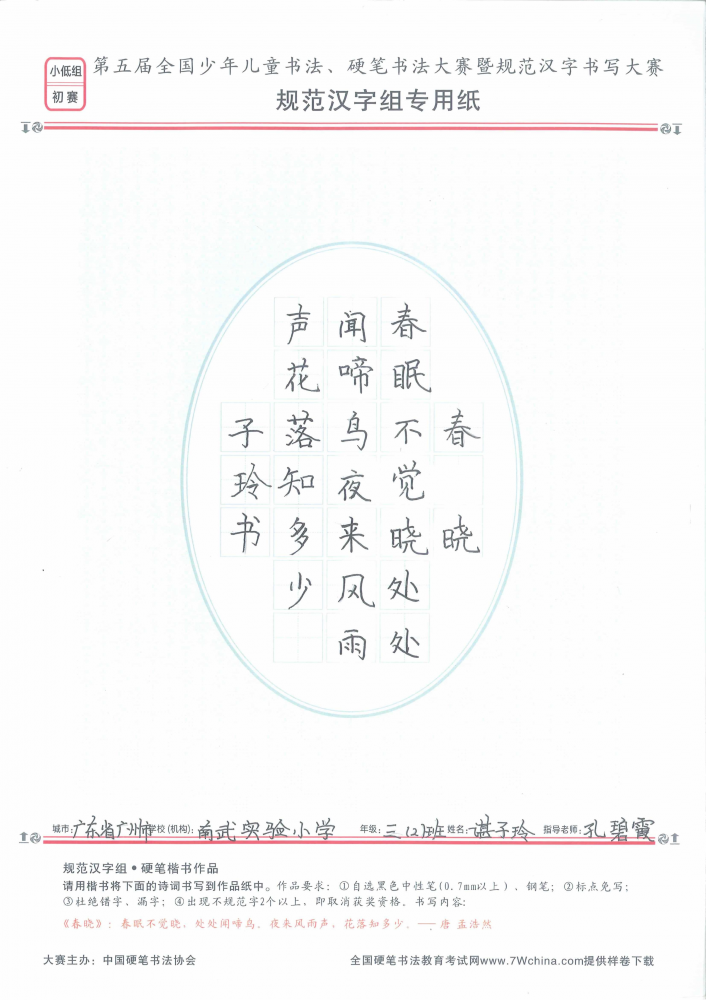 小低组
初赛
第五届全国少年儿童书法、硬笔书法大赛暨规范汉字书写大赛
规范汉字组专用纸
春晓
春眠不觉晓处处
闻啼鸟夜来风雨
声花落知多少
子玲书
城市:广东省广州市 学校(机构):南武实验小学 年级:三(2)班 姓名:谌子玲 指导老师:孔碧霞
规范汉字组•硬笔楷书作品
请用楷书将下面的诗词书写到作品纸中。作品要求:①自选黑色中性笔(0.7mm以上)、钢笔;②标点免写;
③杜绝错字、漏字;④出现不规范字2个以上,即取消获奖资格。书写内容:
《春晓》:春眠不觉晓,处处闻啼鸟。夜来风雨声,花落知多少。——唐 孟浩然
大赛主办:中国硬笔书法协会 全国硬笔书法教育考试网www.7Wchina.com提供样卷下载